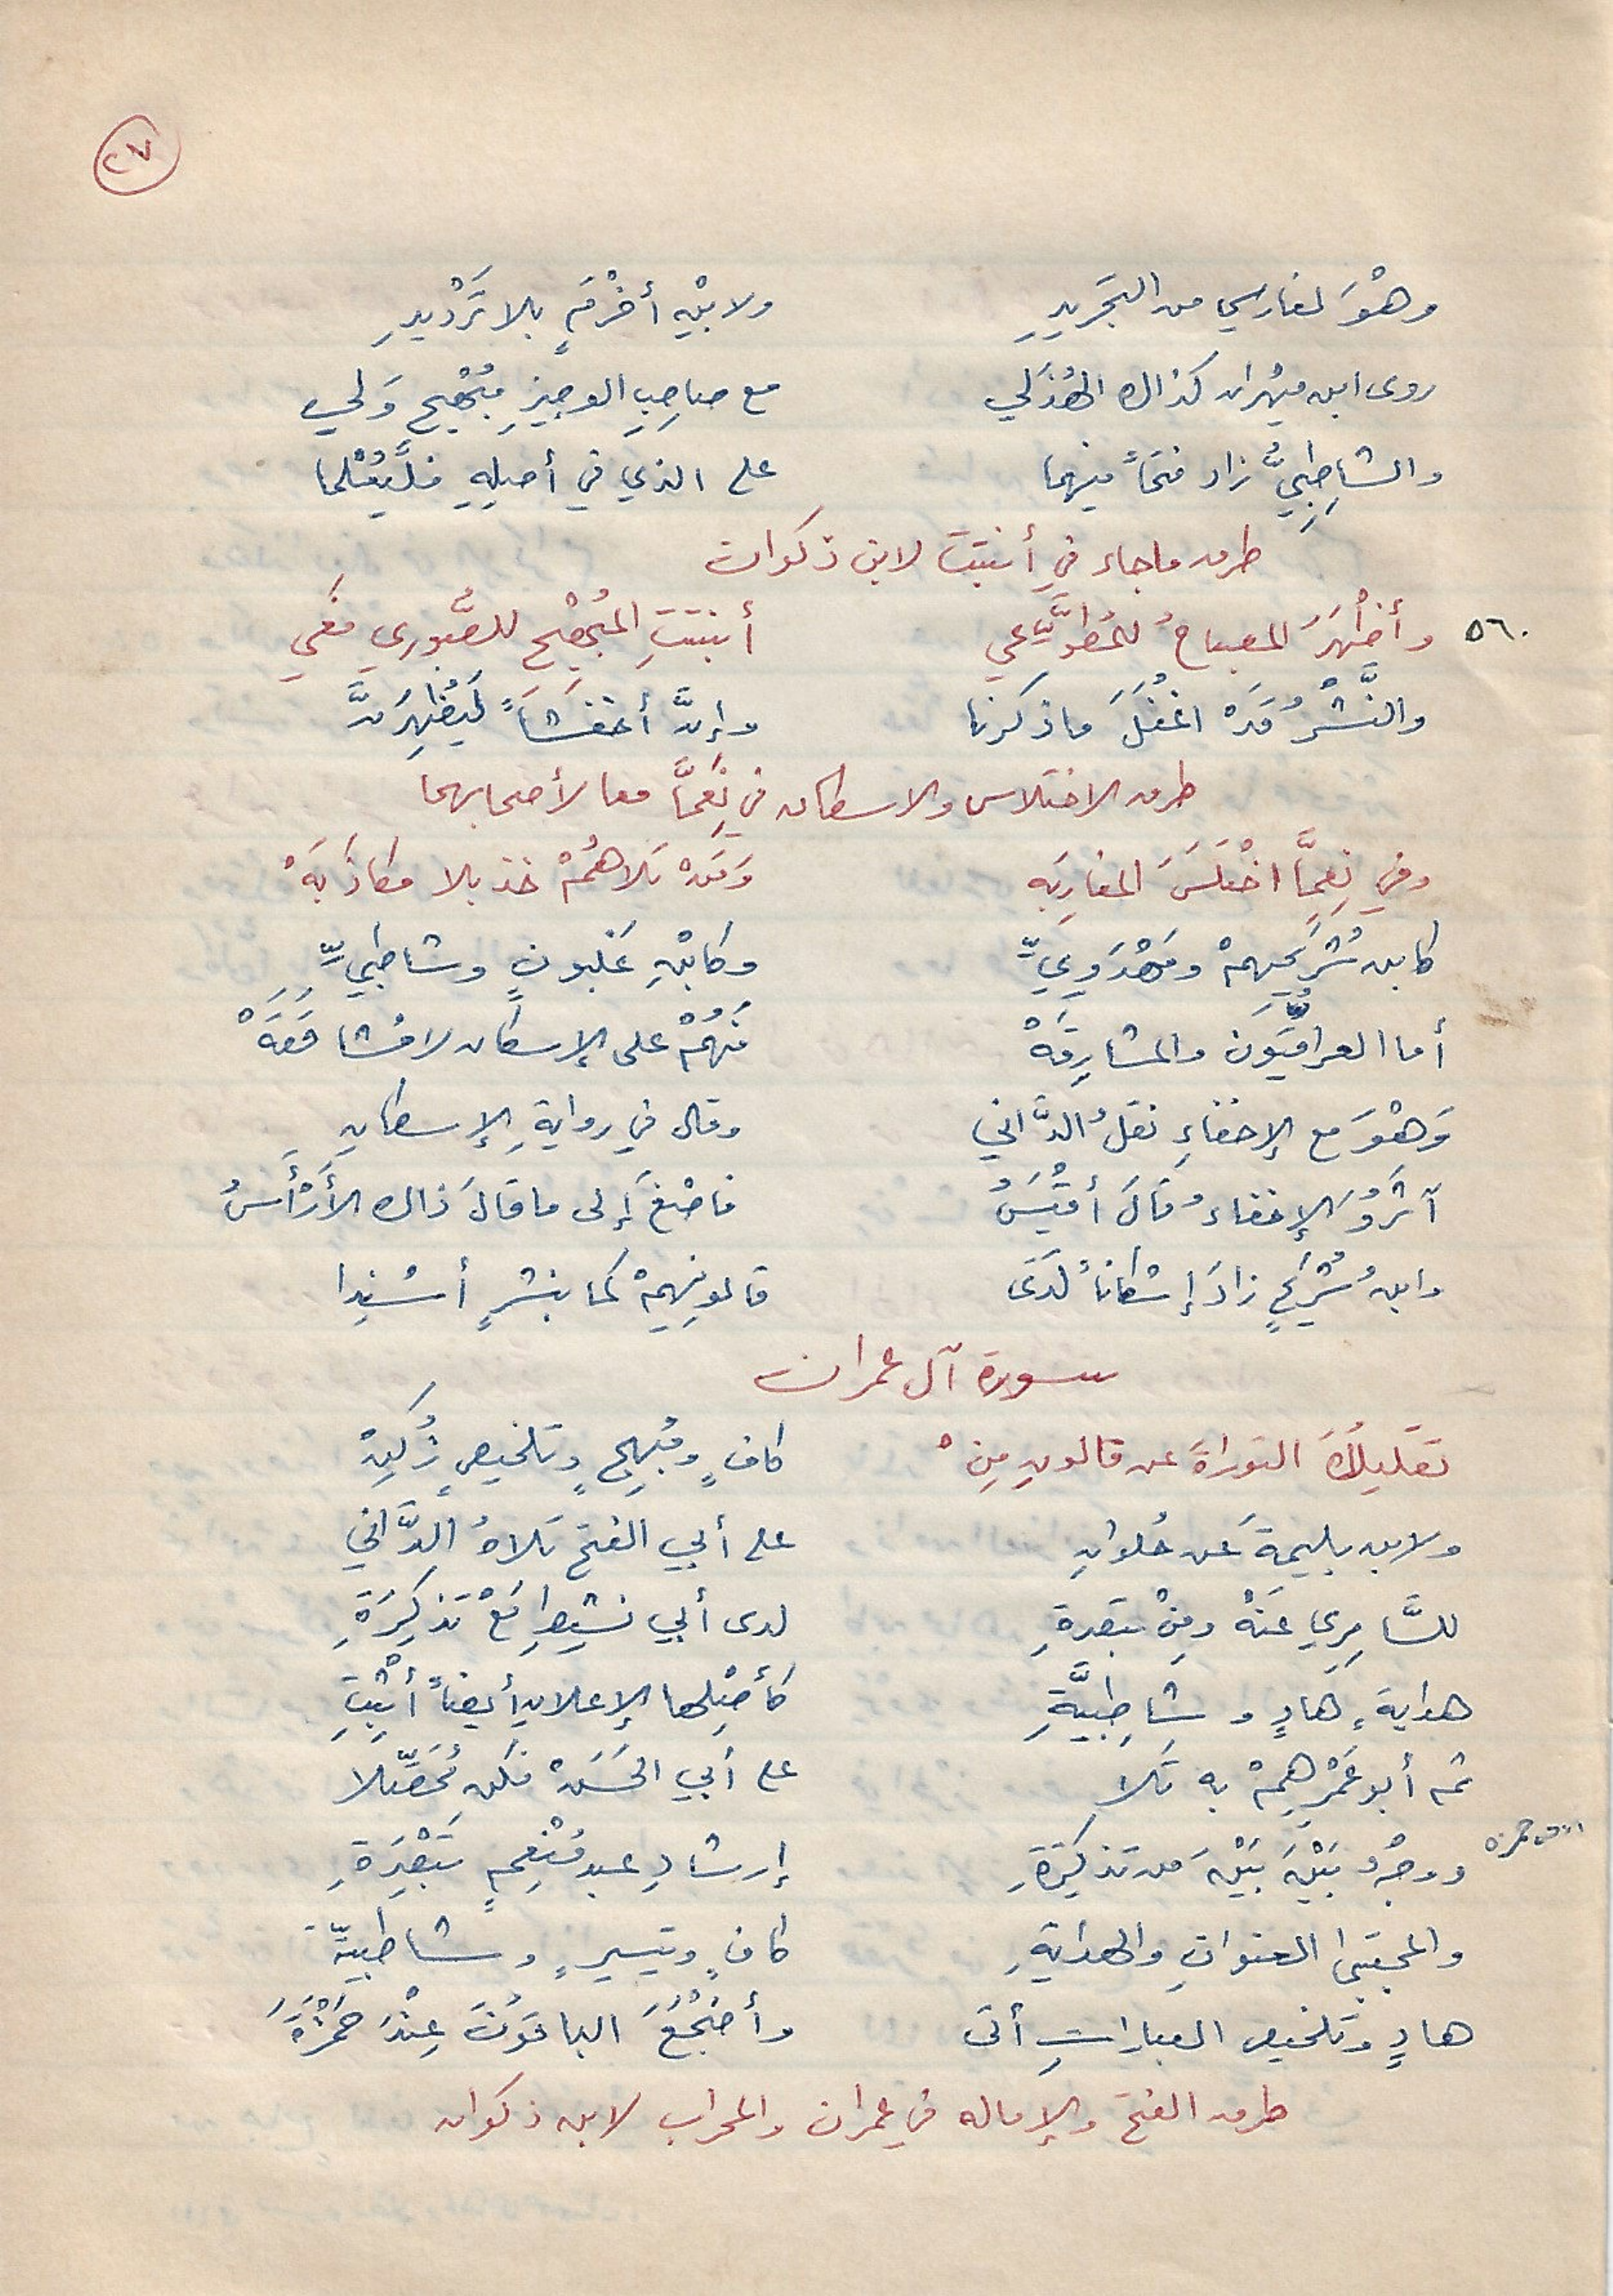 ٢٧
وهْوَ لفارسي من التجريدِ ولابْنِهِ أخرمٍ بلا تَرْديدِ
روى ابن مِهران كذاك الهُذَلي مع صاحِبِ الوجيزِ مُبْهِجٍ وَلي
والشاطِبِيُّ زاد فتحاً فيهما على الذي في أصلِهِ فلْيُعْلما
طرق ما جاء في أنبتت لابن ذكوان
٥٦٠ وأظْهَرَ المصباحُ للمُطَّوِّعي أنبتتِ المُبْهِج للصُّوري فَعِي
والنَّشْرُ قدْ اغفلَ ما ذكرنا وإنَّ أخفشاً لَيُظهِرَنَّ
طرق الاختلاس والاسكان في نِعِمَّا معا لأصحابهما
وفي نِعِمَّا اخْتَلَسَ المغارِبَه وَمَنْ تلاهُمْ خذ بلا مكاذَبَهْ
كابن شُرَيحِهِمْ ومَهْدَوِيِّ وكابْنِ غَلبونٍ وشاطبيِّ
أما العراقيُّونَ والمشارِقَهْ فَهُمْ على الإسكان لا مُشاقَقَهْ
وَهْوَ مع الإخفاءِ نقلُ الدَّاني وقال في روايةِ الإسكانِ
آثَرُ والإخفاءُ قالَ أقْيَسُ فاصْغَ إلى ما قالَ ذاك الأَرْأَسُ
وابنُ شُرَيحٍ زادَ إسْكاناً لَدَى قالونِهِمْ كما بنشرٍ أسْنِدا
سورة آل عمران
تقليلُكَ التوراةَ عن قالونِ مِنْ كافٍ ومُبهِجٍ وتلخيصٍ زُكِنْ
ولابن بليمةَ عن حُلوانِ على أبي الفتح تلاهُ الدَّاني
للسَّامِرِي عَنْهُ ومِنْ تبصرةِ لدى أبي نشيطِ مَعْ تذكِرَةِ
هدايةٍ هَادٍ وشاطِبيَّةِ كأصْلِها الإعلانِ أيضاً أثْبِتِ
ثم أبو عَمْرِهِمْ به تلا على أبي الحَسَنْ فكن مُحَصِّلا
ووجْهُ بَيْنَ بَيْنَ من تذكِرَةِ إرشادِ عبدِ مُنْعِمٍ تَبْصِرَةِ
والمجتبى العنوانِ والهدايةِ كافٍ وتيسيرٍ وشاطبيَّة
هادٍ وتلخيص العباراتِ أتى وأضْجَعَ الباقونَ عِنْدَ حَمْزَةَ
طرق الفتح والإماله في عمران والمحراب لابن ذكوان